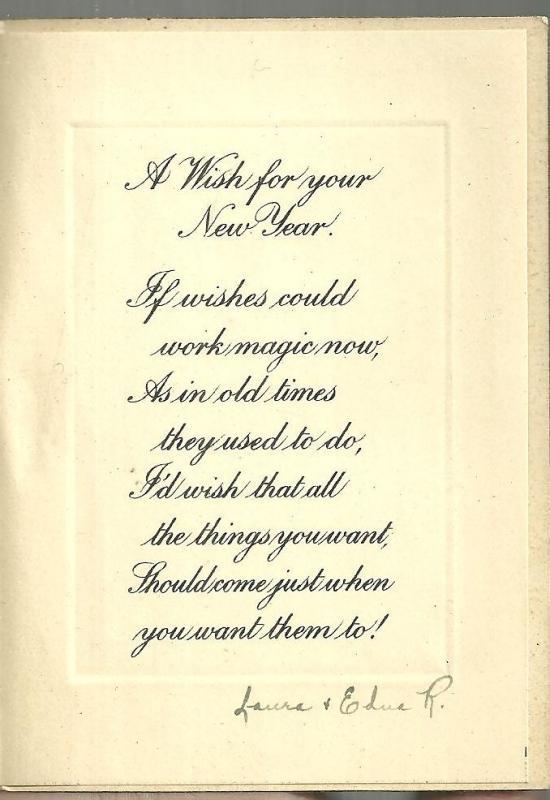 A Wish for your
New Year.
If wishes could
work magic now,
As in old times
they used to do,
I'd wish that all
the things you want,
Should come just when
you want them to!
Laura & Edna R.